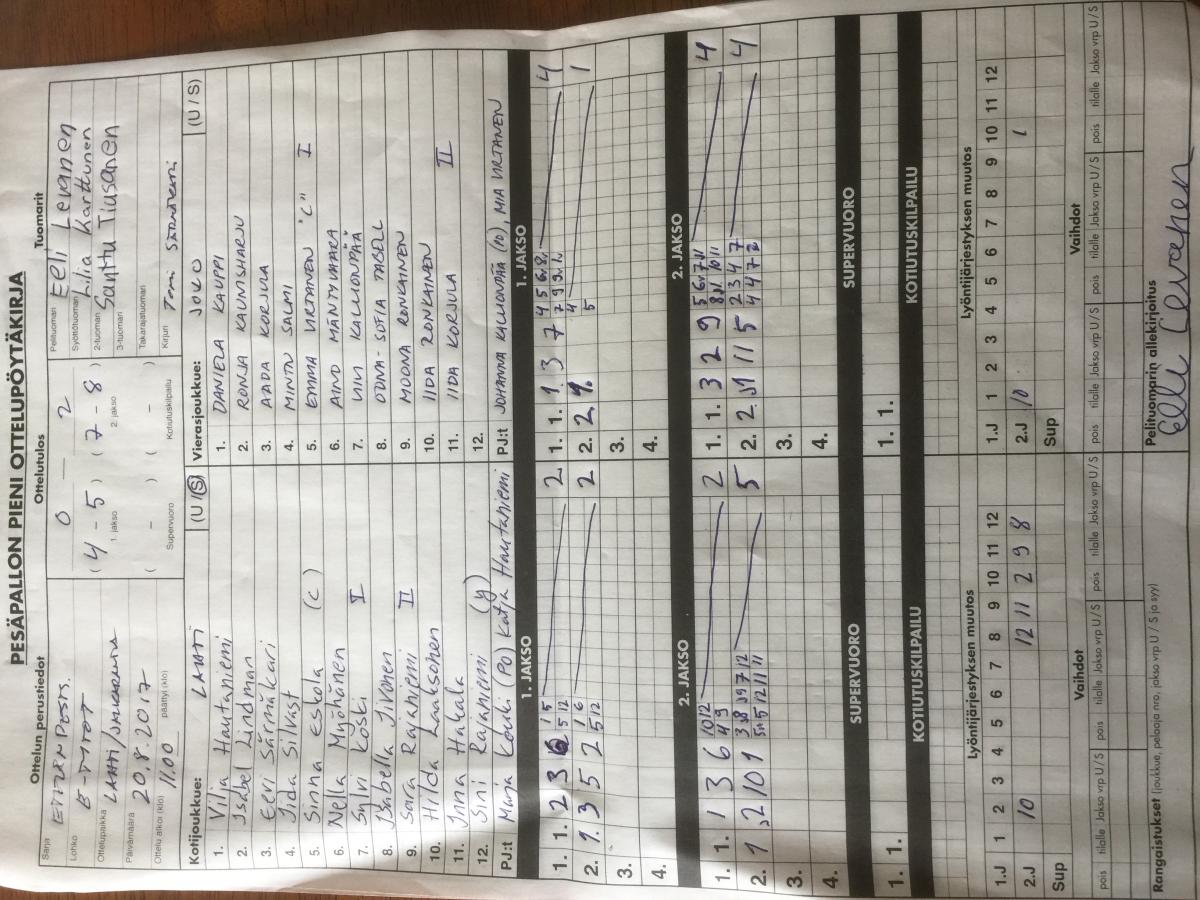 PESÄPALLON PIENI OTTELUPÖYTÄKIRJA
Ottelun perustiedot
Ottelutulos
Tuomarit
Sarja
Lohko E-TYTÖT
Ottelupaikka LAHTI/
Päivämäärä 20.8.2017
Ottelu alkoi (klo) 11.00 päättyi (klo)
0 — 2
( 4 - 5 ) ( 7 - 8 )
1. jakso 2. jakso
( - ) ( - )
Supervuoro Kotiutuskilpailu
Pelituomari Eeli Levanen
Syöttötuomari Lilia Karttunen
2-tuomari Santtu Tiusanen
3-tuomari
Takarajatuomari
Kirjuri Tomi
Kotijoukkue: LAHTI (U/S)
1. Vilja Hautaniemi
2. Isabel Lindman
3. Eevi Särmäkari
4. Iida Silvast
5. Sinna Eskola (c)
6. Nella Myöhänen
7. Sylvi Koski I
8. Isabella Jivonen
9. Sara Rajaniemi II
10. Hilda Laaksonen
11. Iina Hakala
12. Sini Rajaniemi (y)
PJ:t Marja Kouki (PO) Katja Hautaniemi
Vierasjoukkue: JOKU (U/S)
1. DANIELA KAUPPI
2. RONJA KAUNISHARJU
3. AADA KORJULA
4. MINTTU SALMI
5. EMMA VIRTANEN "C" I
6. AINO MÄNTYVAARA
7. VIVI KALLIONPÄÄ
8. OONA-SOFIA TABELL
9. MOONA RONKAINEN
10. IIDA RONKAINEN
11. IIDA KORJULA II
12.
PJ:t JOHANNA KALLIONPÄÄ (10), MIA VIRTANEN
1. JAKSO
1. 1. 2 3 6 2
2. 1. 3 5 2 2
3.
4.
1. JAKSO
1. 1. 1 3 7 4
2. 2 2 1
3.
4.
2. JAKSO
1. 1. 1 3 6 2
2. 1 2 10 1 5
3.
4.
2. JAKSO
1. 1. 3 2 9 4
2. 2 11 5 4
3.
4.
SUPERVUORO
1. 1.
SUPERVUORO
1. 1.
KOTIUTUSKILPAILU
KOTIUTUSKILPAILU
Lyöntijärjestyksen muutos
1 2 3 4 5 6 7 8 9 10 11 12
1.J
2.J 10 12 11 2 9 8
Sup
Lyöntijärjestyksen muutos
1 2 3 4 5 6 7 8 9 10 11 12
1.J
2.J 10 1
Sup
Vaihdot
pois tilalle Jakso vrp U/S pois tilalle Jakso vrp U/S pois tilalle Jakso vrp U/S
Vaihdot
pois tilalle Jakso vrp U/S pois tilalle Jakso vrp U/S pois tilalle Jakso vrp U/S
Rangaistukset (joukkue, pelaaja nro, jakso vrp U/S ja syy)
Pelituomarin allekirjoitus
Eeli Levanen